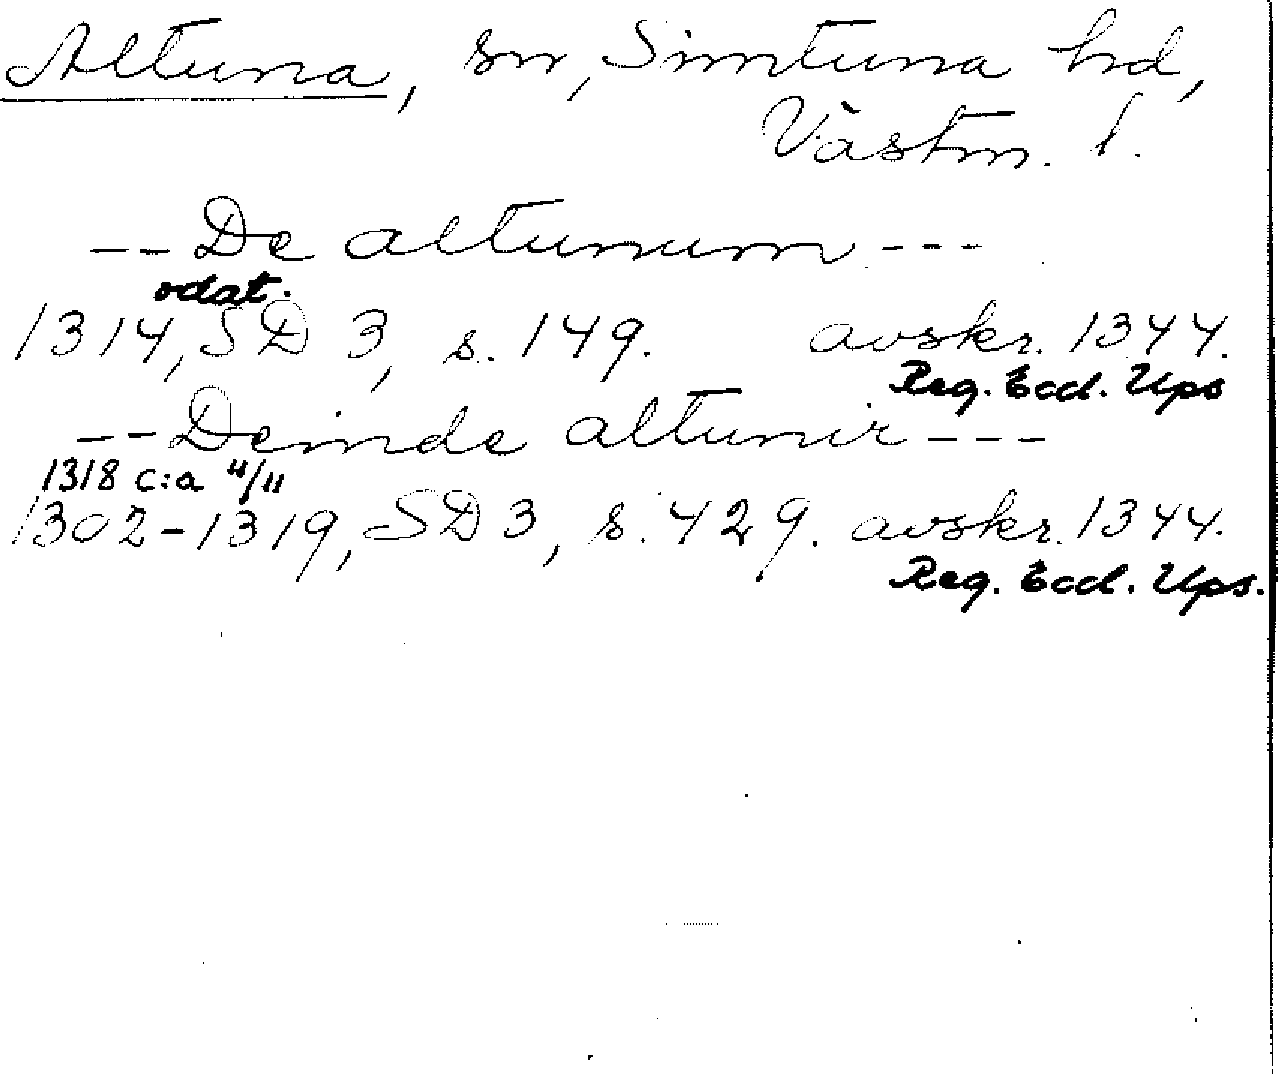 Altuna, sn, Simtuna hd,
Västm. l.
-- De altunum ---
odat.
1314, SD 3, s. 149. avskr. 1344.
Reg. Eccl. Ups
-- Deinde altunir ---
1318 c:a 4/11
1302-1319, SD 3, s. 429. avskr. 1344.
Reg. Eccl. Ups.